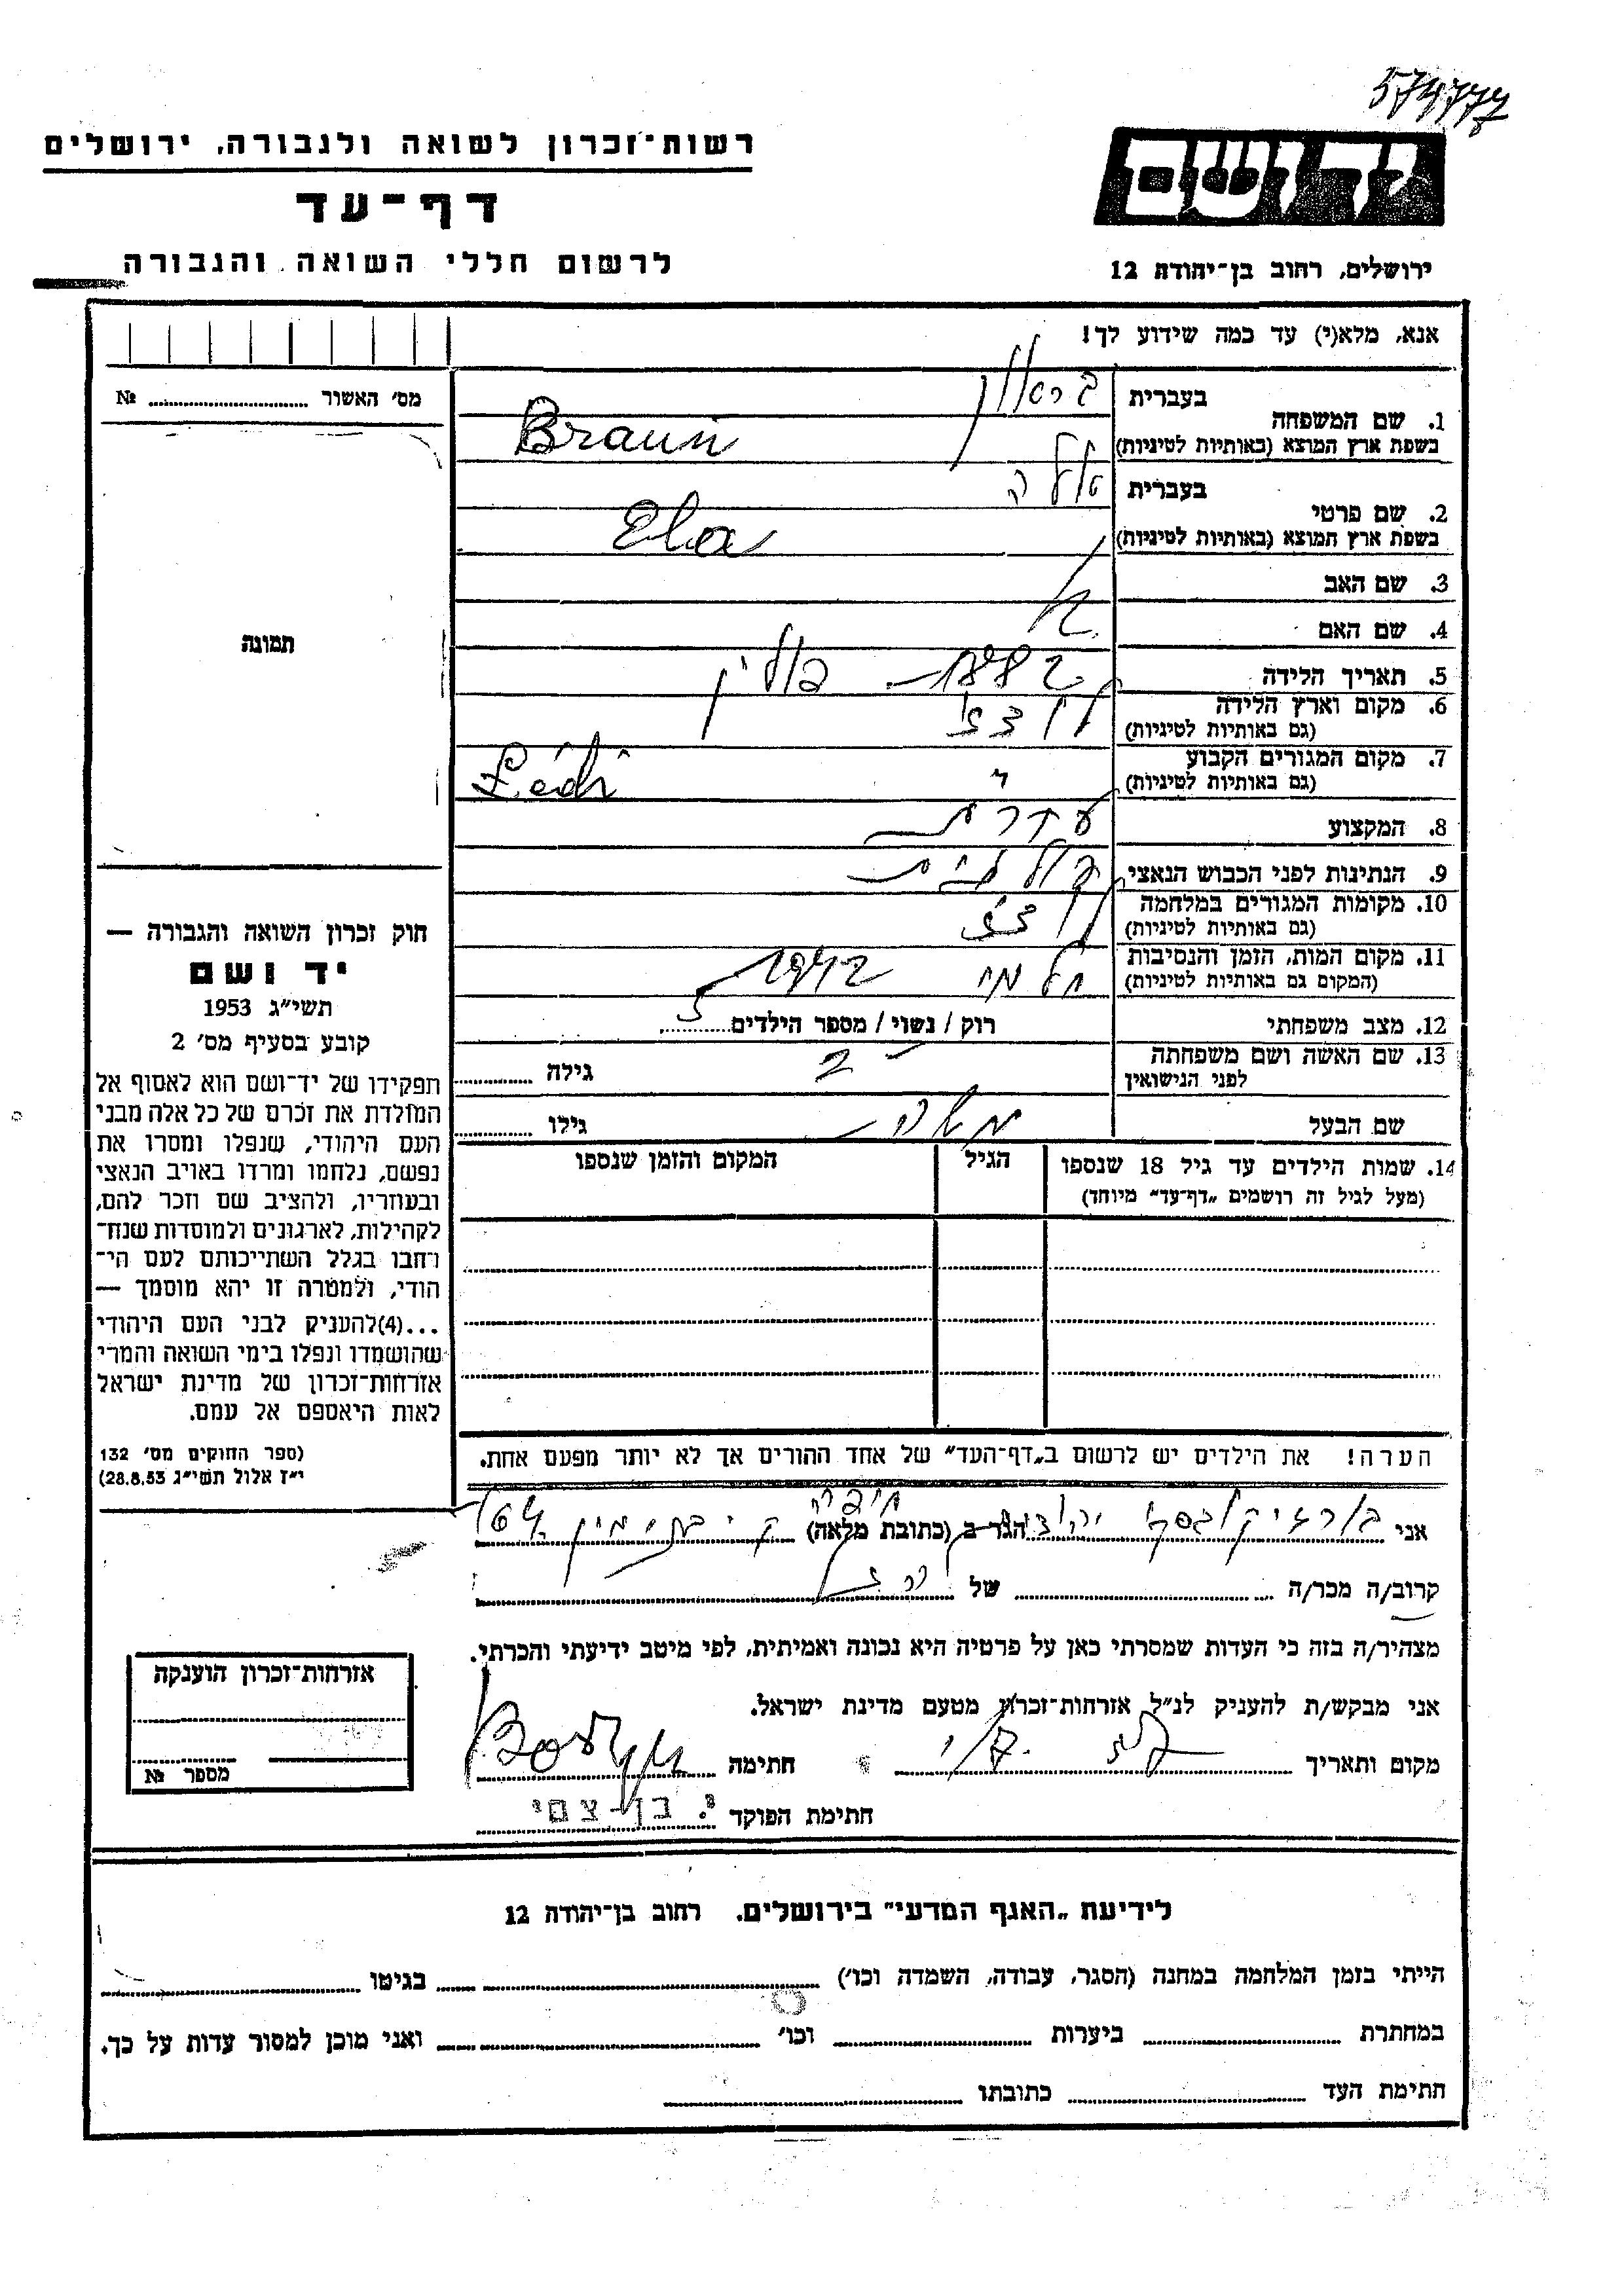 רשות־זכרון לשואה ולגבורה, ירושלים
דף־עד
לרשום חללי השואה והגבורה
יד ושם
ירושלים, רחוב בן־יהודה 12
אנא, מלא(י) עד כמה שידוע לך!
מס׳ האשור № 
1. שם המשפחה
בעברית בראון
בשפת ארץ המוצא (באותיות לטיניות) Braun
2. שם פרטי
בעברית אלה
בשפת ארץ המוצא (באותיות לטיניות) Ela
3. שם האב
4. שם האם
5. תאריך הלידה
6. מקום וארץ הלידה לודז׳ פולין
(גם באותיות לטיניות)
7. מקום המגורים הקבוע Łódź
(גם באותיות לטיניות)
8. המקצוע
9. הנתינות לפני הכבוש הנאצי פולנית
10. מקומות המגורים במלחמה לודז׳
(גם באותיות לטיניות)
11. מקום המות, הזמן והנסיבות 1942
(המקום גם באותיות לטיניות)
12. מצב משפחתי רוק / נשוי / מספר הילדים
13. שם האשה ושם משפחתה גילה
לפני הנישואין
שם הבעל משה גילו
14. שמות הילדים עד גיל 18 שנספו הגיל המקום והזמן שנספו
(מעל לגיל זה רושמים „דף־עד״ מיוחד)
הערה! את הילדים יש לרשום ב„דף־העד״ של אחד ההורים אך לא יותר מפעם אחת.
תמונה
חוק זכרון השואה והגבורה —
יד ושם
תשי״ג 1953
קובע בסעיף מס׳ 2
תפקידו של יד־ושם הוא לאסוף אל
המולדת את זכרם של כל אלה מבני
העם היהודי, שנפלו ומסרו את
נפשם, נלחמו ומרדו באויב הנאצי
ובעוזריו, ולהציב שם וזכר להם,
לקהילות, לארגונים ולמוסדות שנח־
רבו בגלל השתייכותם לעם הי־
הודי, ולמטרה זו יהא מוסמך —
...(4)להעניק לבני העם היהודי
שהושמדו ונפלו בימי השואה והמרי
אזרחות־זכרון של מדינת ישראל
לאות היאספם אל עמם.
(ספר החוקים מס׳ 132
י״ז אלול תשי״ג 28.8.53)
אני הגר ב (כתובת מלאה) חיפה
קרוב/ה מכר/ה של
מצהיר/ה בזה כי העדות שמסרתי כאן על פרטיה היא נכונה ואמיתית, לפי מיטב ידיעתי והכרתי.
אני מבקש/ת להעניק לנ״ל אזרחות־זכרון מטעם מדינת ישראל.
מקום ותאריך חתימה
חתימת הפוקד י. בן-צמי
אזרחות־זכרון הוענקה
מספר №
לידיעת „האגף המדעי״ בירושלים, רחוב בן־יהודה 12
הייתי בזמן המלחמה במחנה (הסגר, עבודה, השמדה וכו׳) בגיטו
במחתרת ביערות וכו׳ ואני מוכן למסור עדות על כך.
חתימת העד כתובתו